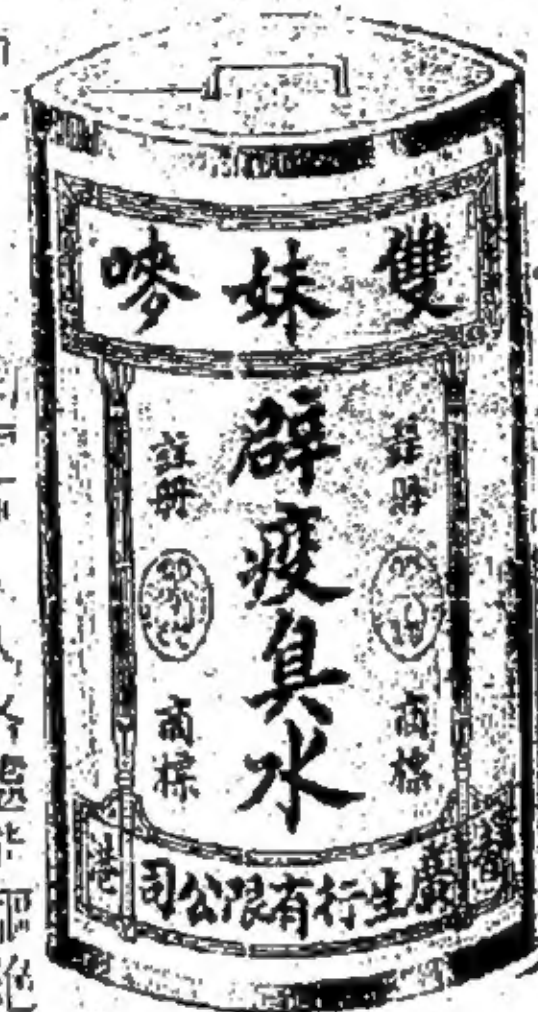 雙妹嘜
註冊
商標
辟疫臭水
註冊
商標
香港
廣生行有限公司